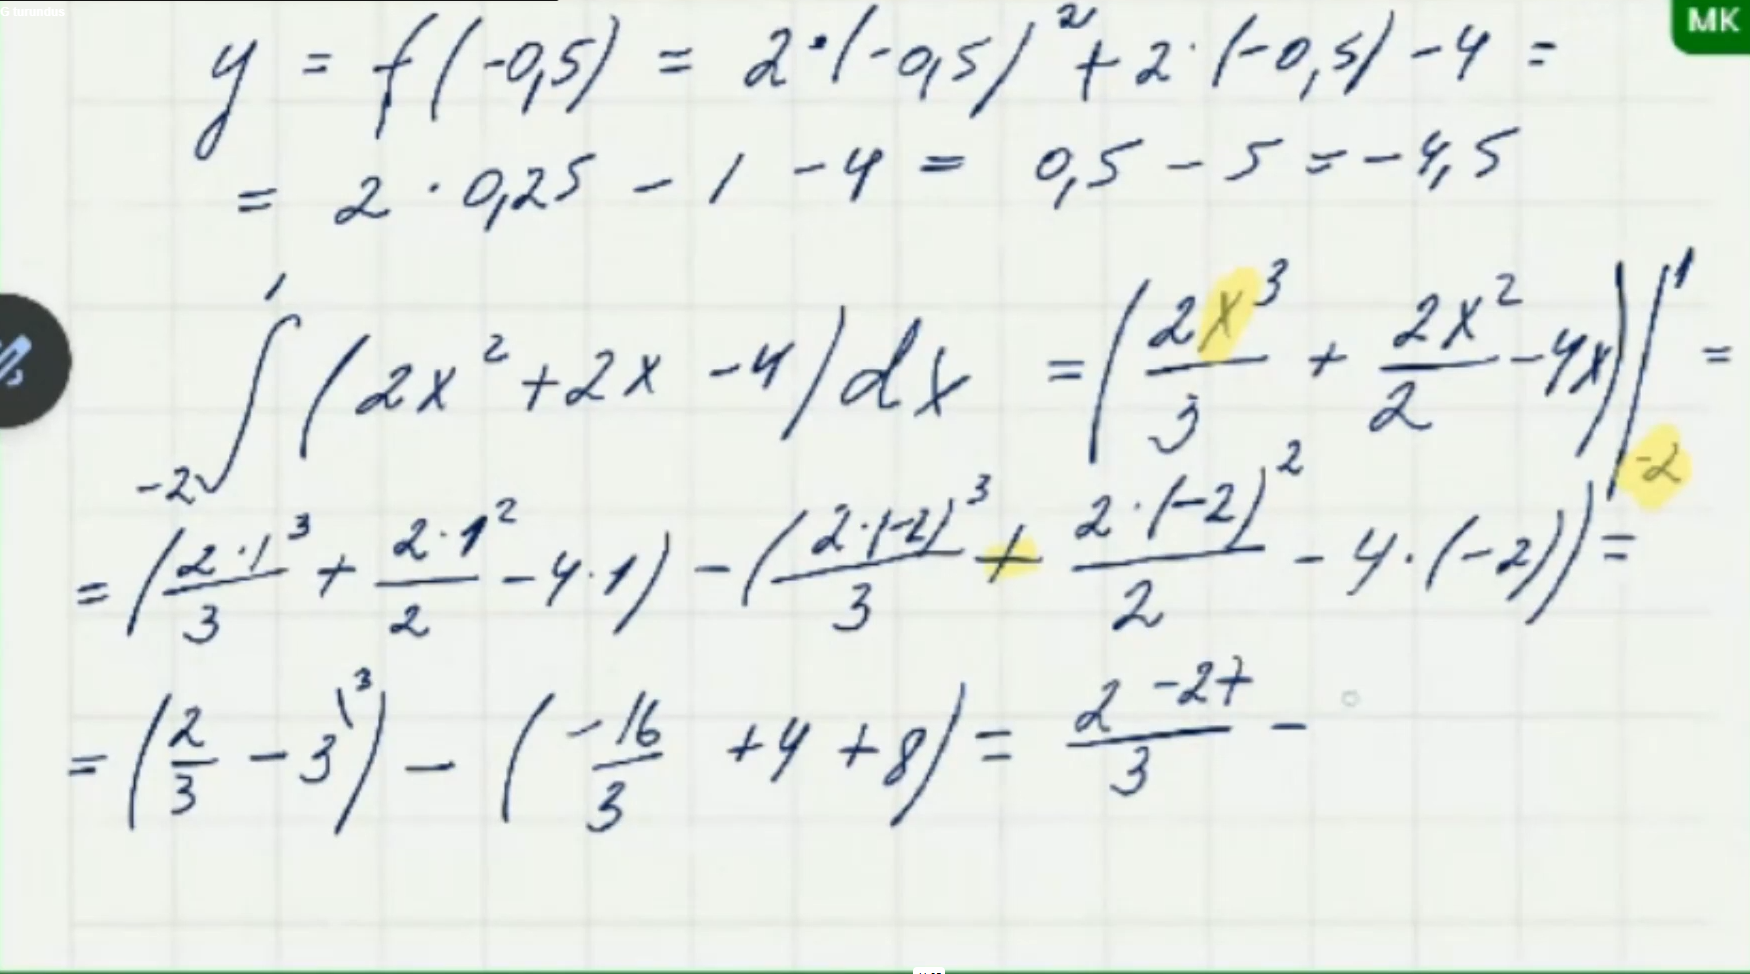 G turundus
MK
y = f(-0,5) = 2·(-0,5)² + 2·(-0,5) - 4 =
= 2 · 0,25 - 1 - 4 = 0,5 - 5 = -4,5
∫₋₂¹ (2x² + 2x - 4) dx = (2x³/3 + 2x²/2 - 4x)|₋₂¹ =
= (2·1³/3 + 2·1²/2 - 4·1) - (2·(-2)³/3 + 2·(-2)²/2 - 4·(-2)) =
= (2/3 - 3\³) - (-16/3 + 4 + 8) = 2 - 27/3 -